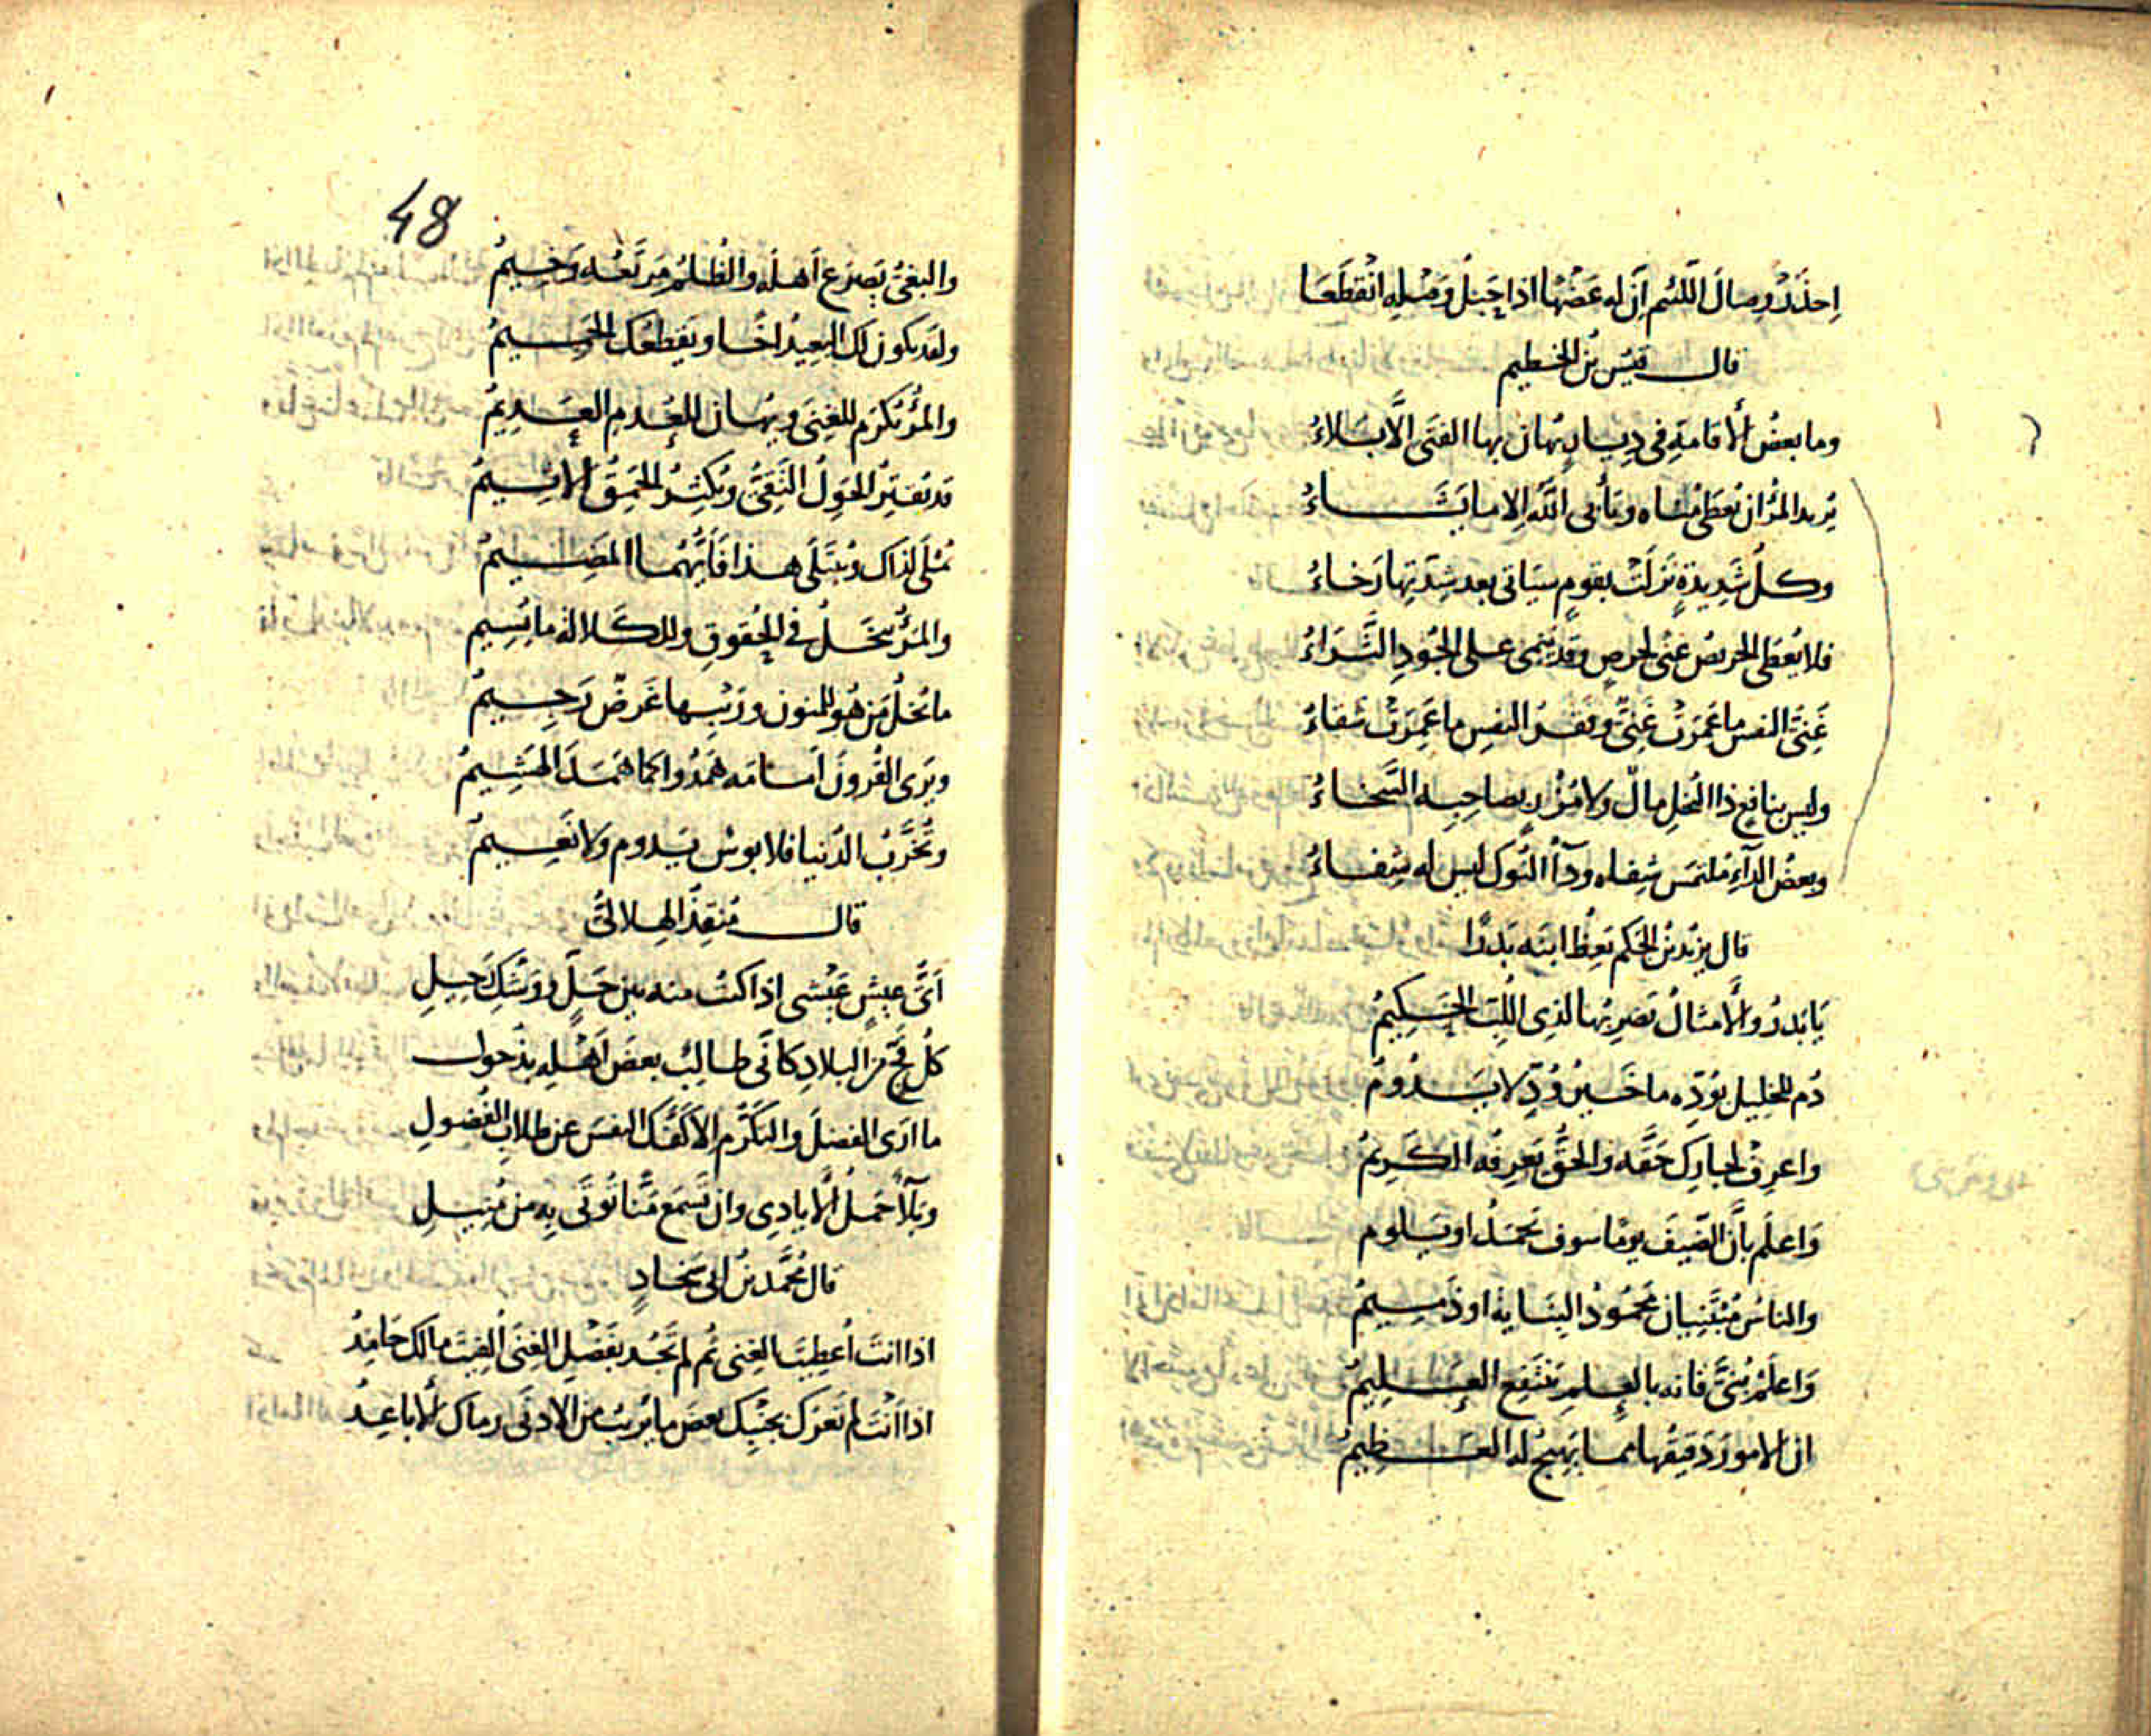 اِحذَرْ وِصالَ اللَّئيم اِنّ له عَضْهًا اذا حَبْلُ وَصْلِهِ انْقَطَعَا
قال قَيْس بْن الخطيم
وما بعضُ الأقامةِ فى دِيارٍ يُهان بها الفَتَى الّا بَلاءُ
يُريد المرْؤ ان يُعْطَى مُناه ويَأْبى اللّه الا ما يَشَاءُ
وكلُّ شَدِيدةٍ نَزَلَتْ بقومٍ سيَاتى بعد شِدّتِها رَخاءُ
فلا يُعْطَى الحريصُ غنًى لحِرصٍ وقد يَنْمى على الجُودِ الثَّرَاءُ
غَنِىُّ النفس ما عَمِرَتْ غَنِىٌّ وفَقرُ النفسِ ما عَمِرَتْ شقاءُ
وليس بنافِع ذا البُخلِ مالٌ ولا مُزْرٍ بصاحِبِه السَّخاءُ
وبعضُ الدآءِ مُلتمَس شِفاه ودآءُ النُّوك ليس له شِفاءُ
قال يزيدُ بْنُ الحَكَم يَعِظُ ابنَه بَدْرًا
يَا بَدرُ والأمثالُ يَضرِبُها لذِى اللُّبّ الحَكِيمُ
دُم للخليل بوُدّه ما خَيرُ وُدٍّ لا يَدُومُ
واعرِفْ لجارِك حَقَّه والحَقُّ يَعرِفُه الكَرِيمُ
وَاعلَم بأنَّ الضَّيفَ يومًا سوف يَحْمَدُ او يَلوم
والناسُ مُبْتَنِيان مَحمُودُ البِنَايةِ او ذَمِيمُ
وَاعلَمْ بُنَىَّ فانه بالعِلمِ يَنتَفِع العَلِيمُ
ان الامورَ دَقِيقُها مما يَهِيجُ له العَظِيمُ
48
والبغىُ يَصرَع أَهلَه والظُلمُ مَرتَعُه وَخِيمُ
ولقد يكون لك البعِيدُ اخًا ويَقطعُك الحَمِيمُ
والمرْؤ يُكرَم للغِنَى ويُهان للعُدمِ العَدِيمُ
قد يُقتِرُ الحَوِلُ التَّقِىُّ ويُكثِرُ الحَمِقُ الأثِيمُ
يُمْلَى لذاك ويُبتَلَى هذا فَأَيُّهُما المَضِيمُ
والمرْؤ يَبخَلُ فى الحُقوقِ وللكَلالة ما يُسِيم
ما بُخلُ مَن هُو للمَنون ورَيْبِها غَرَضٌ رَجِيمُ
ويَرى القُرونَ اَمامَه هَمَدُوا كما هَمَدَ الهَشِيمُ
وتُخَرَّبُ الدُّنيا فلا بوسٌ يَدوم ولا نَعِيمُ
قال مُنقِذٌ الهِلالىُّ
اَىُّ عيشٍ عَيْشى اذا كنتُ منه بين حَلٍّ ووَشْكِ رَحِيلِ
كلُّ فَجٍّ من البلادِ كأنّى طالبٌ بعضَ اَهْلِهِ بذُحول
ما اَرَى الفضلَ والتكرُّم الّا كَفَّك النفسَ عن طِلابِ الفُضولِ
وبَلآءٌ حَمْلُ الأيادِى وان تَسْمَعَ مَنًّا تُوتَى بِهِ من مُنِيلِ
قال مُحَّمد بْنُ ابى شِحَاذٍ
اذا انتَ اُعطِيتَ الغِنى ثُم لم تَجُد بفَضْلِ الغِنَى اُلفِيتَ مالك حَامِدُ
اذا اَنْتَ لم تَعرُك بجَنْبِك بعضَ ما يُرِيبُ من الادنَى رماك الأباعِدُ